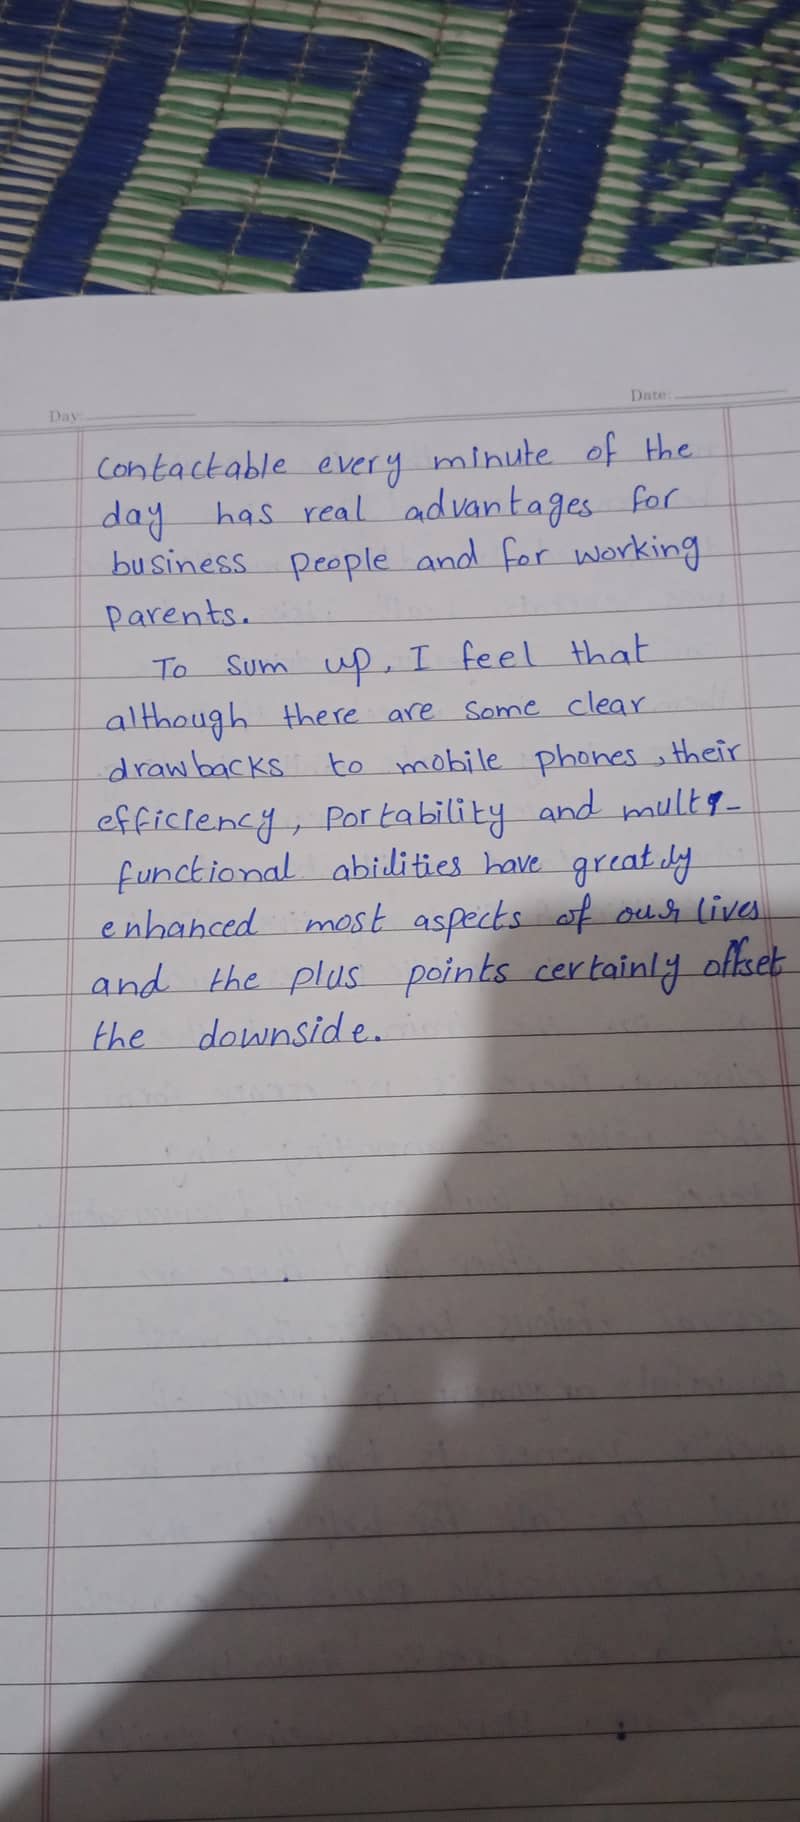 Day:
Date:
contactable every minute of the
day has real advantages for
business people and for working
parents.
To sum up, I feel that
although there are some clear
drawbacks to mobile phones, their
efficiency, portability and multi-
functional abilities have greatly
enhanced most aspects of our lives
and the plus points certainly offset
the downside.